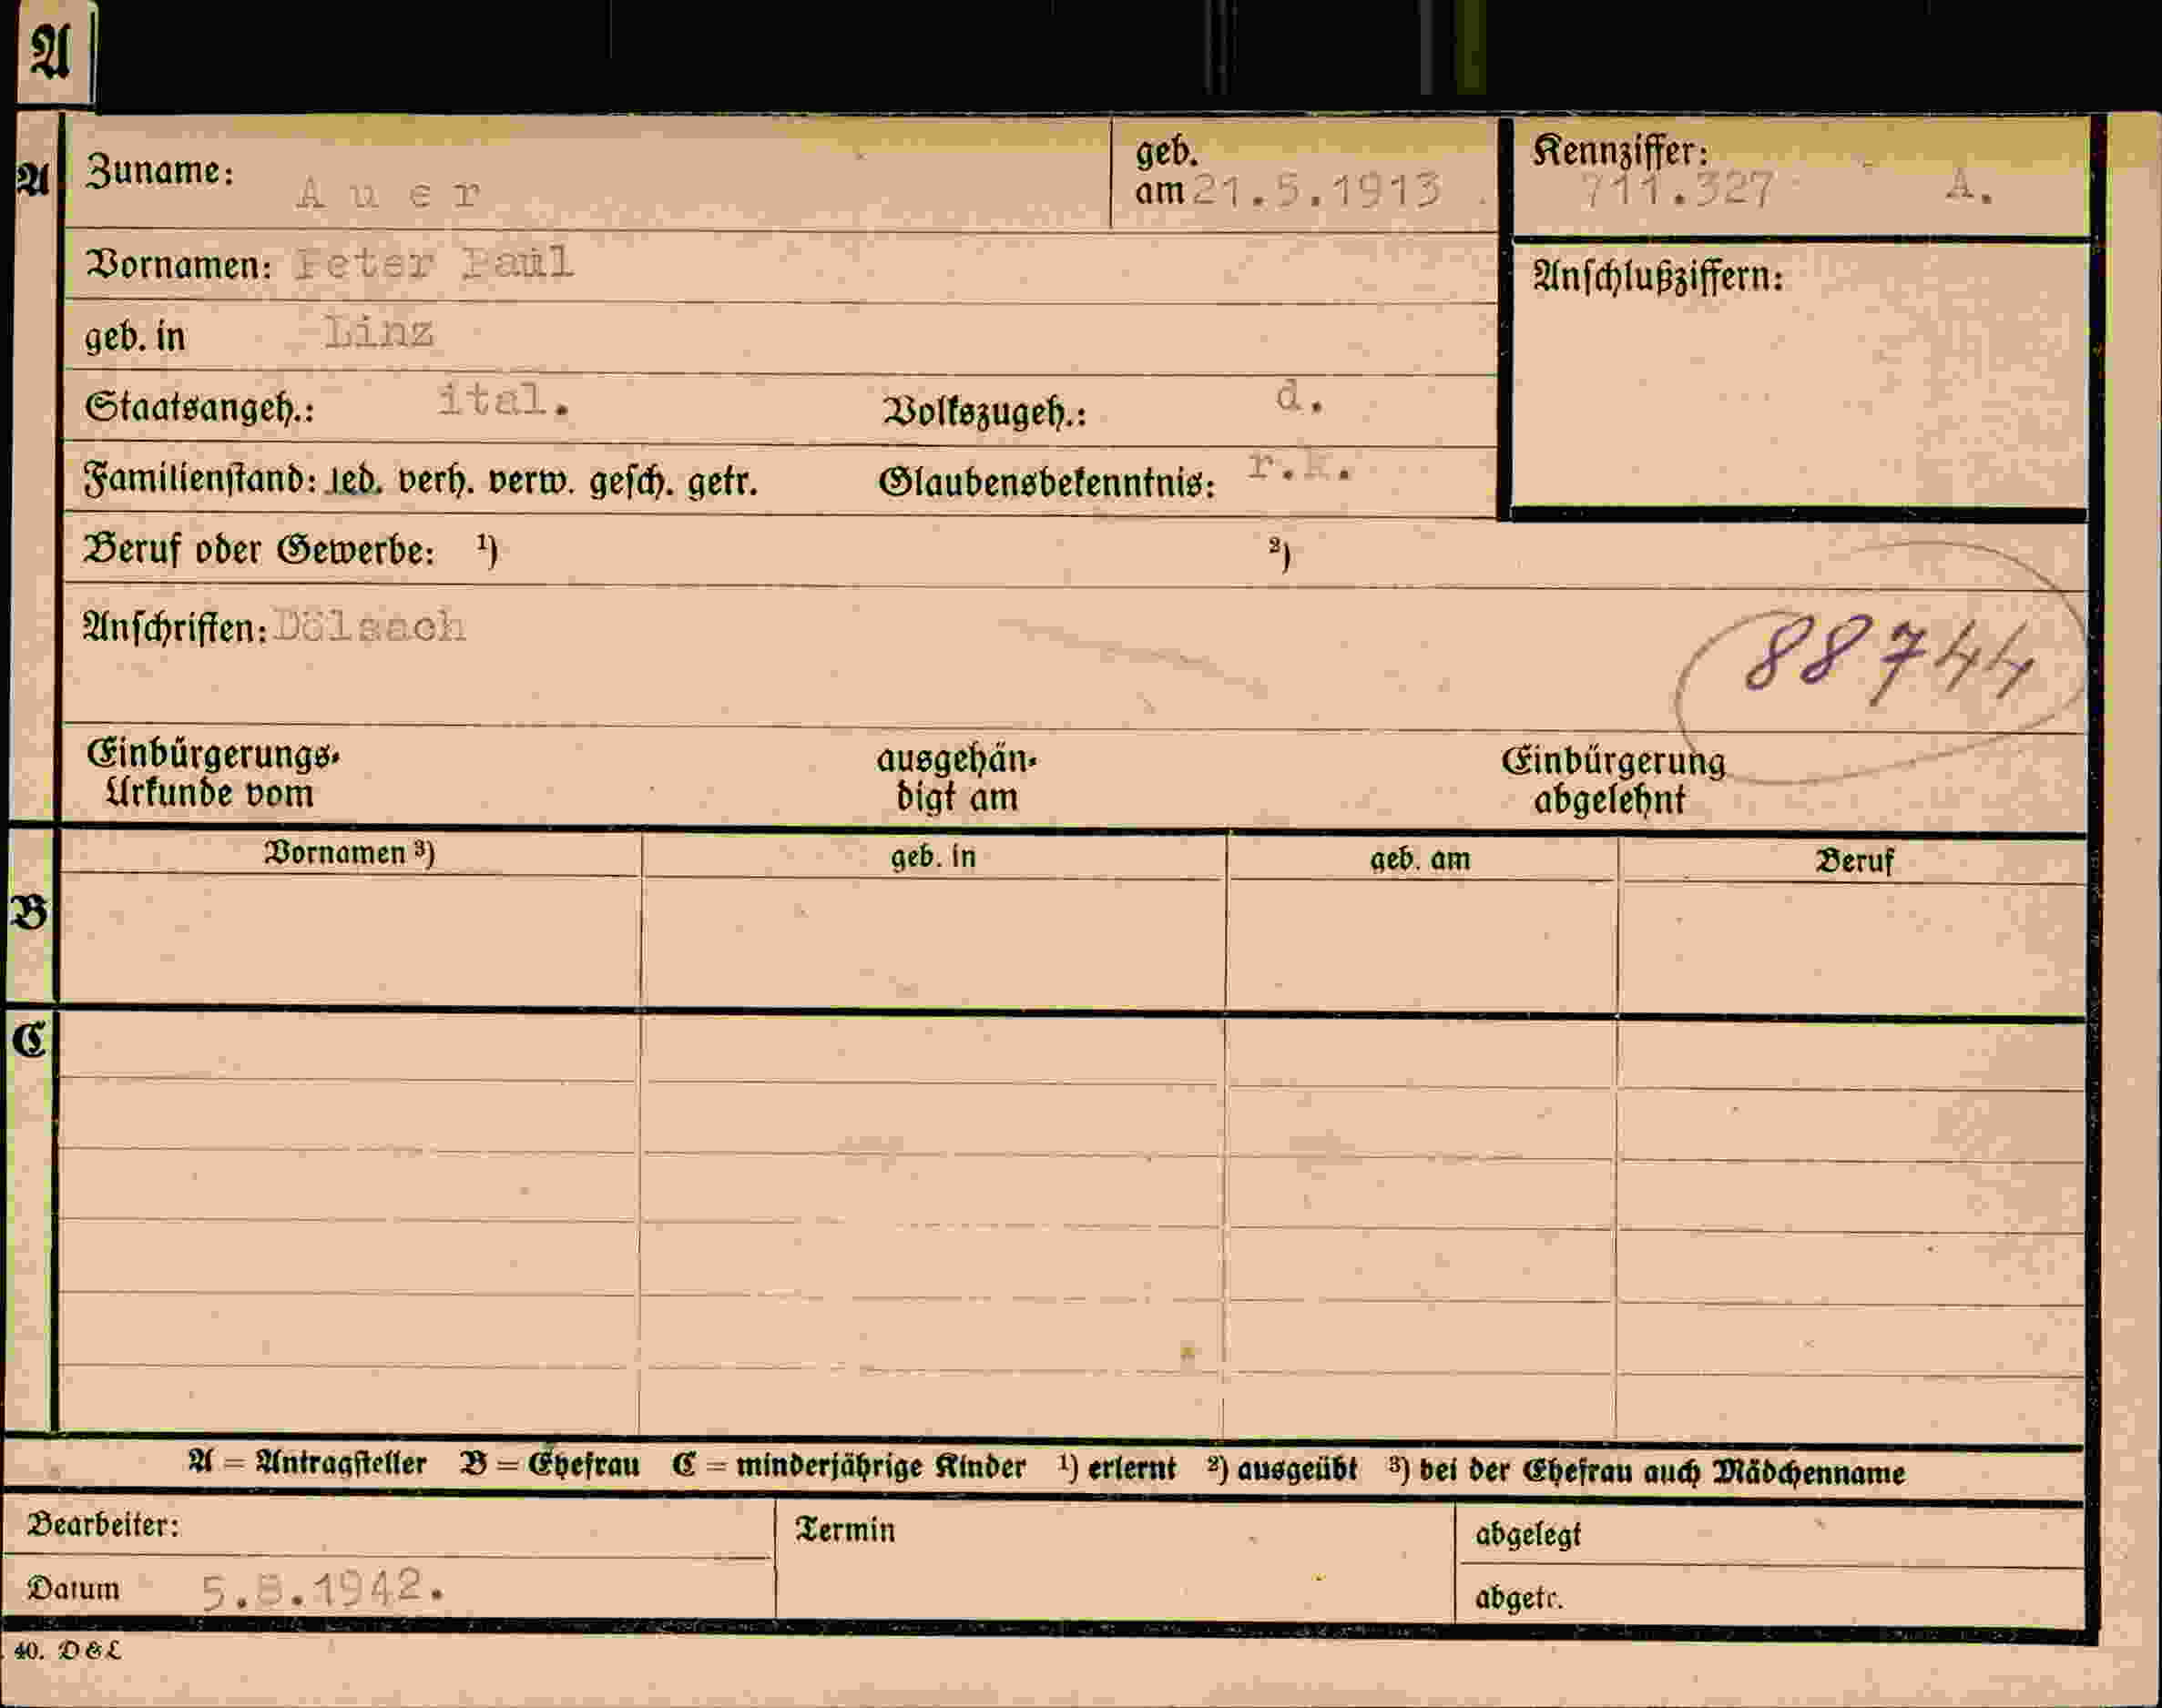 A
A
Zuname: Auer
geb. am 21.5.1913
Kennziffer: 711.327 A.
Vornamen: Peter Paul
Anschlußziffern:
geb. in Linz
Staatsangeh.: ital. Volkszugeh.: d.
Familienstand: led. verh. verw. gesch. getr. Glaubensbekenntnis: r.k.
Beruf oder Gewerbe: ¹) ²)
Anschriften: Dölsach
88744
Einbürgerungs-
Urkunde vom
ausgehän-
digt am
Einbürgerung
abgelehnt
Vornamen ³) geb. in geb. am Beruf
B
C
A = Antragsteller B = Ehefrau C = minderjährige Kinder ¹) erlernt ²) ausgeübt ³) bei der Ehefrau auch Mädchenname
Bearbeiter: Termin abgelegt
Datum 5.8.1942. abgetr.
40. D & L